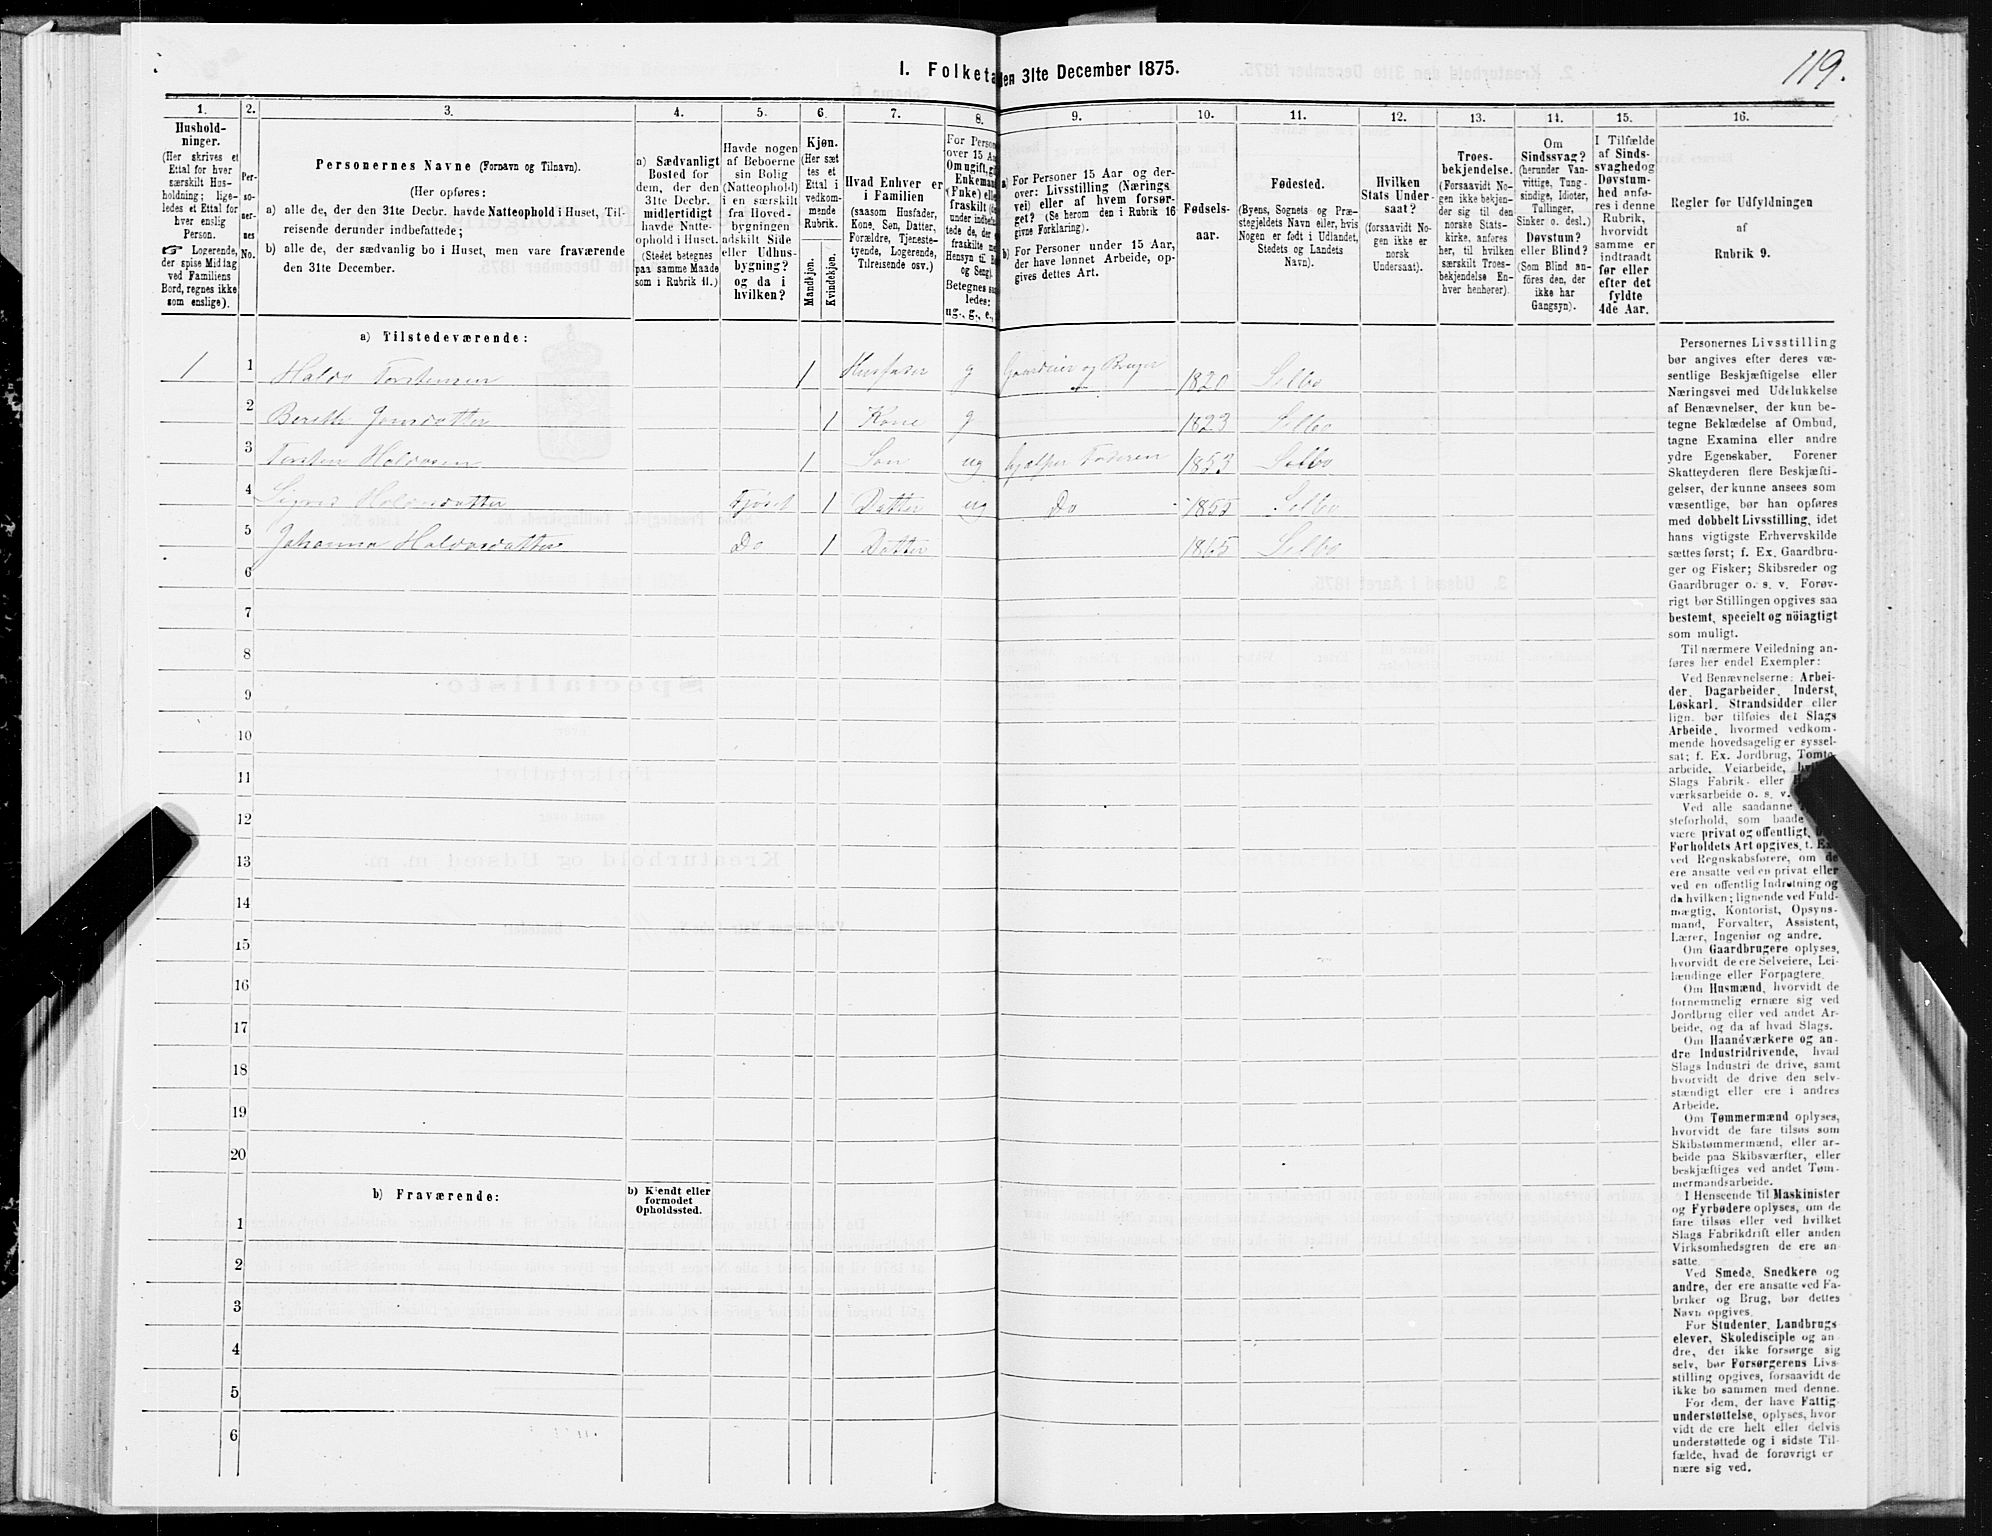 119.
I. Folketa
den 31te December 1875.
1.
2.
3.
4.
5.
6.
7.
8.
9.
10.
11.
12.
13.
14.
15.
16.
Hushold-
ninger.
(Her skrives et
Ettal for hver
særskilt Hus-
holdning; lige-
ledes et Ettal for
hver enslig
Person.
☞ Logerende,
der spise Middag
ved Familiens
Bord, regnes ikke
som enslige).
Per-
so-
ner-
nes
No.
Personernes Navne (Fornavn og Tilnavn).
(Her opføres:
a) alle de, der den 31te Decbr. havde Natteophold i Huset, Til-
reisende derunder indbefattede;
b) alle de, der sædvanlig bo i Huset, men vare fraværende
den 31te December.
a) Sædvanligt
Bosted for
dem, der den
31te Decbr.
midlertidigt
havde Natte-
ophold i Huset.
(Stedet betegnes
paa samme Maade
som i Rubrik 11.)
Havde nogen
af Beboerne
sin Bolig
(Natteophold)
i en særskilt
fra Hoved-
bygningen
adskilt Side
eller Udhus-
bygning?
og da i
hvilken?
Kjøn.
(Her sæt
tes et
Ettal i
vedkom-
mende
Rubrik.
Mandkjøn.
Kvindekjøn.
Hvad Enhver er
i Familien
(saasom Husfader,
Kone, Søn, Datter,
Forældre, Tjeneste-
tyende, Logerende,
Tilreisende osv.)
For Person
over 15 Aa
Om ugift, gi
Enkeman
(Enke) elle
fraskilt (s
under indbef
tede de, der e
fraskilte me
Hensyn til B
og Seng).
Betegnes saa
ledes:
ug., g., e.,
a) For Personer 15 Aar og der-
over: Livsstilling (Nærings
vei) eller af hvem forsør-
get? (Se herom den i Rubrik 16
givne Forklaring).
b) For Personer under 15 Aar,
der have lønnet Arbeide, op-
gives dettes Art.
Fødsels-
aar.
Fødested.
(Byens, Sognets og Præ-
stegjeldets Navn eller, hvis
Nogen er født i Udlandet,
Stedets og Landets
Navn).
Hvilken
Stats Under-
saat?
(forsaavidt No-
gen ikke er
norsk
Undersaat).
Troes-
bekjendelse.
(Forsaavidt No-
gen ikke bekjen-
der sig til den
norske Stats-
kirke, anføres
her, til hvilken
særskilt Troes-
bekjendelse En-
hver henhører).
Om
Sindssvag?
(herunder Van-
vittige, Tung-
sindige, Idioter,
Tullinger,
Sinker o. desl.)
Døvstum?
eller Blind?
(Som Blind an-
føres den, der
ikke har
Gangsyn).
I Tilfælde
af Sinds-
svaghed og
Døvstum-
hed anfø-
res i denne
Rubrik,
hvorvidt
samme er
indtraadt
før eller
efter det
fyldte
4de Aar.
Regler for Udfyldningen
af
Rubrik 9.
a) Tilstedeværende:
1 1 Haldo Torstensen 1 Husfader g Gaardeier og Bruger 1820 Selbo
2 Bereth Jonsdatter 1 Kone g 1823 Selbo
3 Torsten Haldosen 1 Søn ug hjælper Faderen 1853 Selbo
4 Sigrid Haldosdatter Fjøset 1 Datter ug Do 1855 Selbo
5 Johanna Haldosdatter Do 1 Datter 1865 Selbo
6
7
8
9
10
11
12
13
14
15
16
17
18
19
20
b) Fraværende:
b) Kjendt eller
formodet
Opholdssted.
1
2
3
4
5
6
Personernes Livsstilling
bør angives efter deres væ-
sentlige Beskjæftigelse eller
Næringsvei med Udelukkelse
af Benævnelser, der kun be-
tegne Beklædelse af Ombud,
tagne Examina eller andre
ydre Egenskaber. Forener
Skatteyderen flere Beskjæfti-
gelser, der kunne ansees som
væsentlige, bør han opføres
med dobbelt Livsstilling, idet
hans vigtigste Erhvervskilde
sættes først; f. Ex. Gaardbru-
ger og Fisker; Skibsreder og
Gaardbruger o. s. v. Forøv-
rigt bør Stillingen opgives saa
bestemt, specielt og nöiagtigt
som muligt.
Til nærmere Veiledning an-
føres her endel Exempler:
Ved Benævnelserne: Arbei-
der, Dagarbeider, Inderst,
Løskarl, Strandsidder eller
lign. bør tilføies det Slags
Arbeide, hvormed vedkom-
mende hovedsagelig er syssel-
sat; f. Ex. Jordbrug, Tomte-
arbeide, Veiarbeide,
Slags Fabrik- eller
værksarbeide o. s. v.
Ved alle saadanne
steforhold, som baade
være privat og offentligt,
Forholdets Art opgives, f. Ex.
ved Regnskabsførere, om de
ere ansatte ved en privat eller
ved en offentlig Indretning og
da hvilken; lignende ved Fuld-
mægtig, Kontorist, Opsyns-
mand, Forvalter, Assistent,
Lærer, Ingeniør og andre.
Om Gaardbrugere oplyses,
hvorvidt de ere Selveiere, Lei-
lændinge eller Forpagtere.
Om Husmænd, hvorvidt de
fornemmelig ernære sig ved
Jordbrug eller ved andet Ar-
beide, og da af hvad Slags.
Om Haandværkere og an-
dre Industridrivende, hvad
Slags Industri de drive, samt
hvorvidt de drive den selv-
stændigt eller ere i andres
Arbeide.
Om Tømmermænd oplyses,
hvorvidt de fare tilsøs som
Skibstømmermænd, eller ar-
beide paa Skibsværfter, eller
beskjæftiges ved andet Tøm-
mermandsarbeide.
I Henseende til Maskinister
og Fyrbødere oplyses, om de
fare tilsøs eller ved hvilket
Slags Fabrikdrift eller anden
Virksomhedsgren de ere an-
satte.
Ved Smede, Snedkere og
andre, der ere ansatte ved Fa-
briker og Brug, bør dettes
Navn opgives.
For Studenter, Landbrugs-
elever, Skoledisciple og an-
dre, der ikke forsørge sig
selv, bør Forsørgerens Livs-
stilling opgives, forsaavidt de
ikke bo sammen med denne.
For dem, der have Fattig-
understøttelse, oplyses, hvor-
vidt de ere helt eller delvis
understøttede og i sidste Til-
fælde, hvad de forøvrigt er-
nære sig ved.